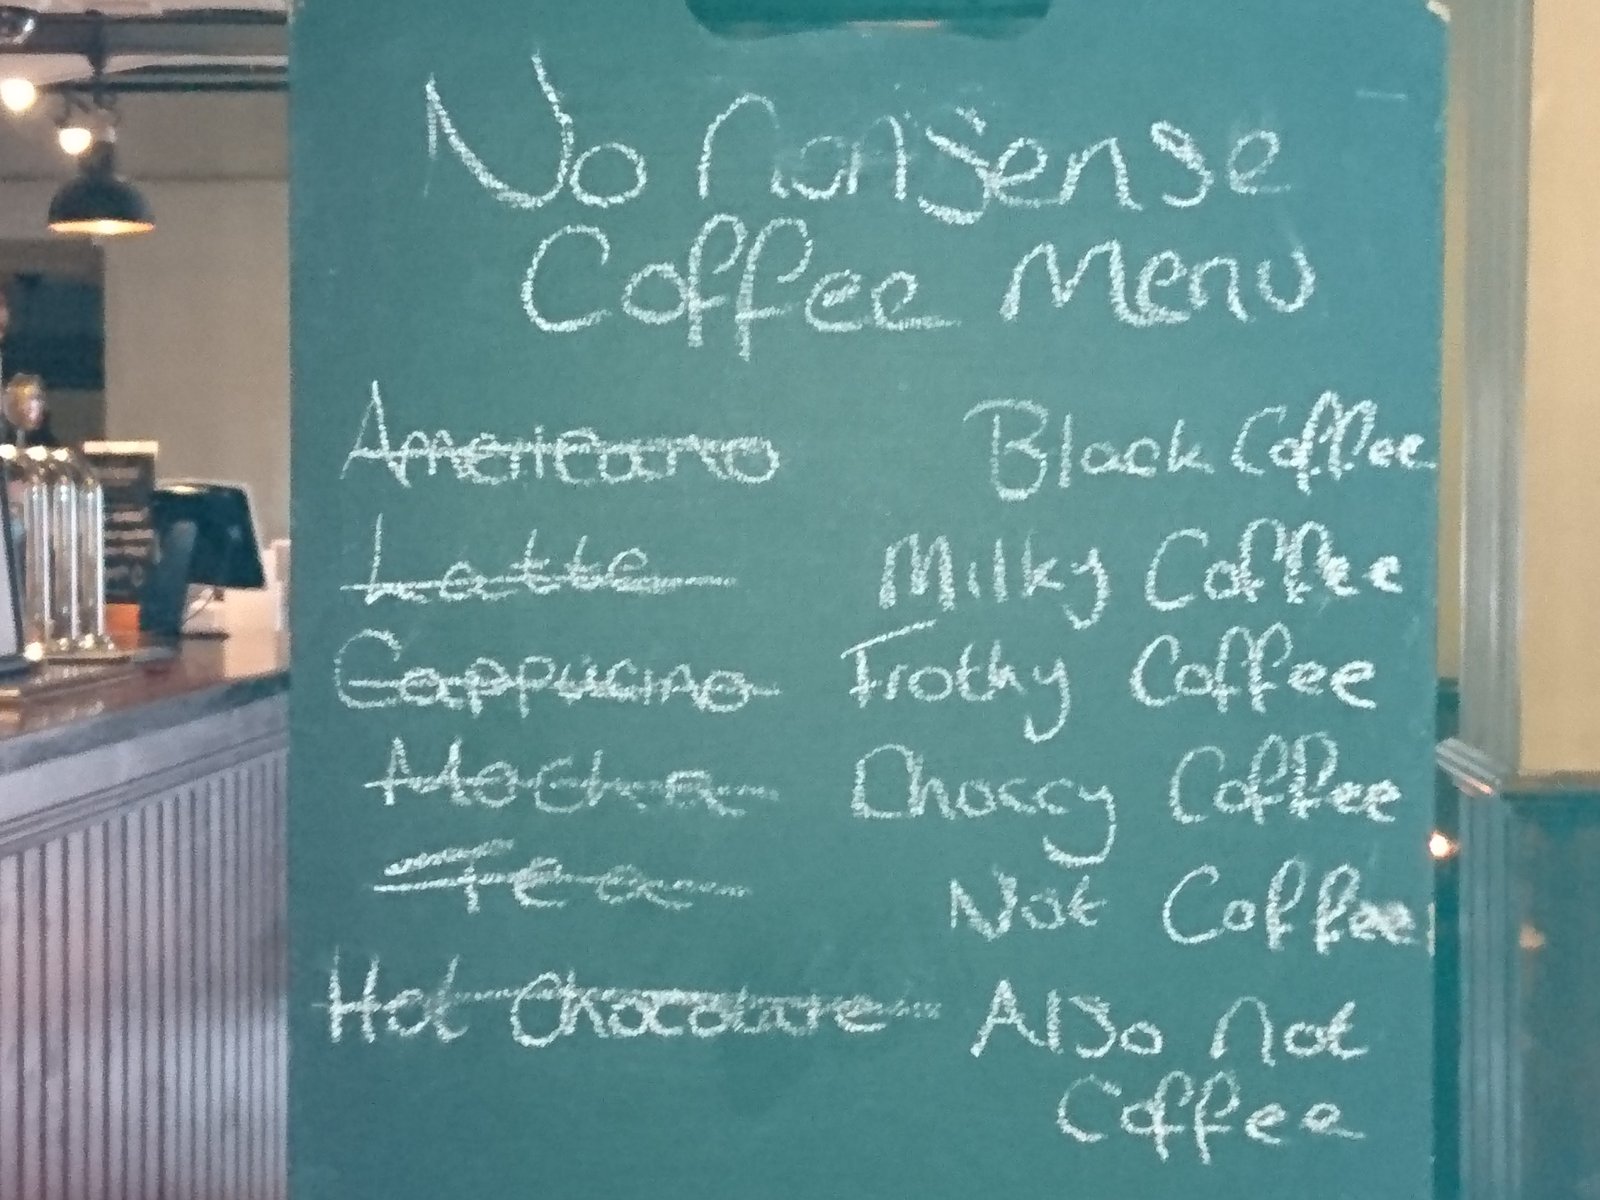 No nonsense
Coffee Menu
Americano Black Coffee
Latte Milky Coffee
Cappucino Frothy Coffee
Mocha Choccy Coffee
Tea Not Coffee
Hot Chocolate Also not
Coffee